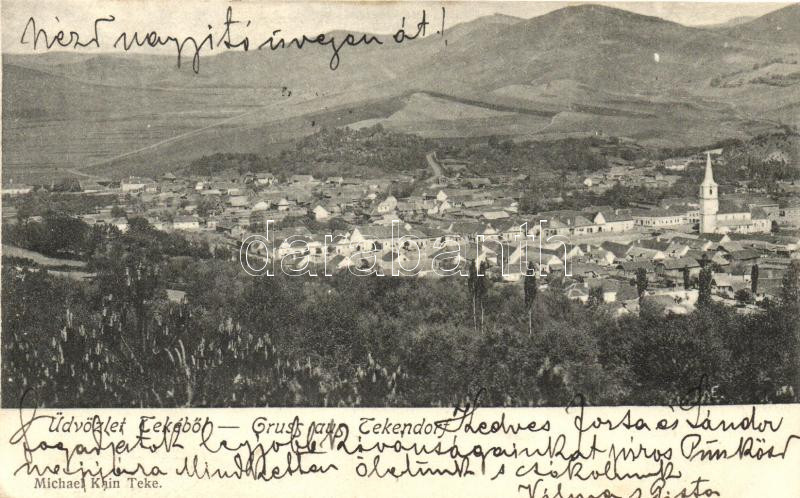 Nézd nagyitó üvegen át!
darabanth
Üdvözlet Tekéből – Gruss aus Tekendorf
Kedves Jorsa és Sándor
Fogadjátok legjobb kivánságainkat piros Pünkösd
napjára Mindketten ölelünk s csókolunk
Michael Kain Teke.
Vilma s Gista